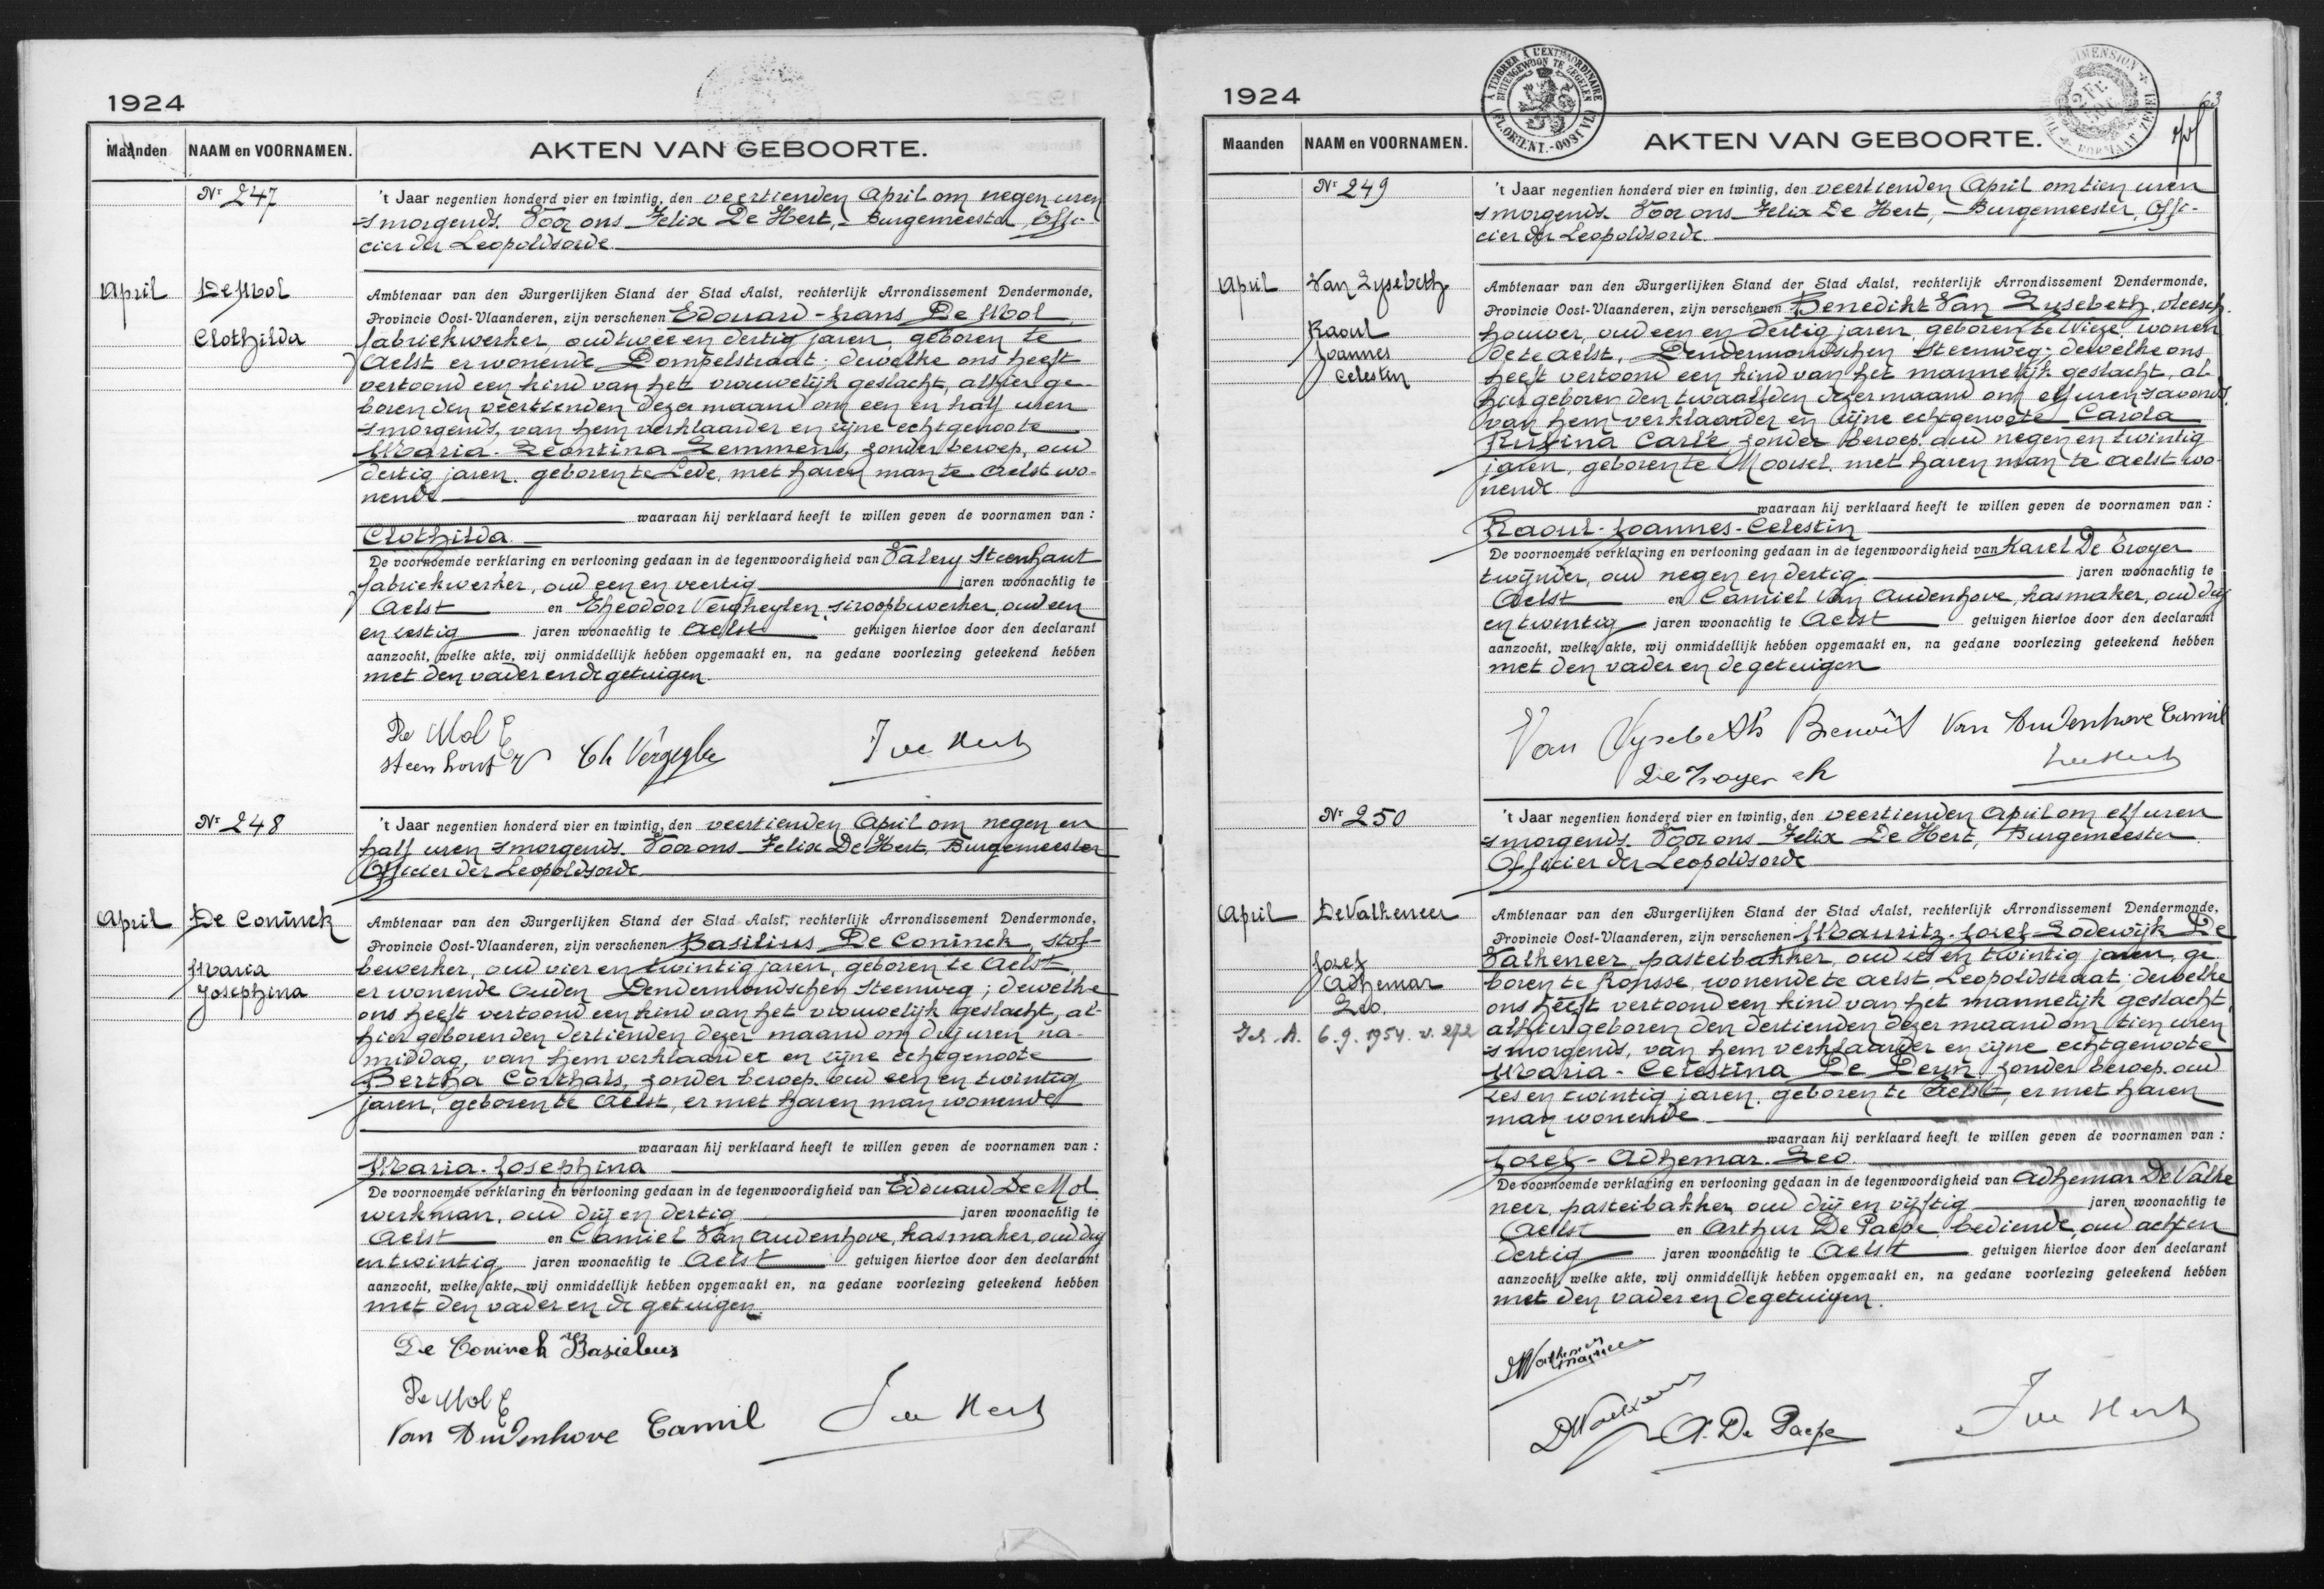 1924
Maanden NAAM en VOORNAMEN. AKTEN VAN GEBOORTE.
Nr 247
't Jaar negentien honderd vier en twintig, den veertienden April om negen uren
smorgends. Voor ons Felix De Hert, Burgemeester, Offi-
cier der Leopoldsorde
April De Mol
Clothilda
Ambtenaar van den Burgerlijken Stand der Stad Aalst, rechterlijk Arrondissement Dendermonde,
Provincie Oost-Vlaanderen, zijn verschenen Edouard-Frans De Mol,
fabriekwerker, oud twee en dertig jaren, geboren te
Aelst er wonende Dompelstraat; dewelke ons heeft
vertoond een kind van het vrouwelijk geslacht, alhier ge-
boren den veertienden dezer maand om een en half uren
smorgends, van hem verklaarder en zijne echtgenoote
Maria-Leontina Lemmens, zonder beroep, oud
dertig jaren, geboren te Lede, met haren man te Aelst wo-
nende
waaraan hij verklaard heeft te willen geven de voornamen van :
Clothilda
De voornoemde verklaring en vertooning gedaan in de tegenwoordigheid van Valery Steenhaut
fabriekwerker, oud een en veertig jaren woonachtig te
Aelst en Theodoor Vergheylen, siroopbewerker, oud een
en zestig jaren woonachtig te Aelst getuigen hiertoe door den declarant
aanzocht, welke akte, wij onmiddellijk hebben opgemaakt en, na gedane voorlezing geteekend hebben
met den vader en de getuigen.
De Mol E
Steenhout
F De Hert
Nr 248
't Jaar negentien honderd vier en twintig, den veertienden April om negen en
half uren smorgends. Voor ons Felix De Hert, Burgemeester
Officier der Leopoldsorde
April De Coninck
Maria
Josephina
Ambtenaar van den Burgerlijken Stand der Stad Aalst, rechterlijk Arrondissement Dendermonde,
Provincie Oost-Vlaanderen, zijn verschenen Basilius De Coninck, stof-
bewerker, oud vier en twintig jaren, geboren te Aelst,
er wonende Ouden Dendermondschen Steenweg; dewelke
ons heeft vertoond een kind van het vrouwelijk geslacht, al-
hier geboren den dertienden dezer maand om drij uren na-
middag, van hem verklaarder en zijne echtgenoote
Bertha Corthals, zonder beroep, oud een en twintig
jaren, geboren te Aelst, er met haren man wonende
waaraan hij verklaard heeft te willen geven de voornamen van :
Maria-Josephina
De voornoemde verklaring en vertooning gedaan in de tegenwoordigheid van Edouard De Mol
werkman, oud drij en dertig jaren woonachtig te
Aelst en Camiel Van Audenhove, kasmaker, oud drij
en twintig jaren woonachtig te Aelst getuigen hiertoe door den declarant
aanzocht, welke akte, wij onmiddellijk hebben opgemaakt en, na gedane voorlezing geteekend hebben
met den vader en de getuigen.
De Coninck Basielus
De Mol E
Van Audenhove Camil F De Hert
1924
A TIMBRER A L'EXTRAORDINAIRE
BUITENGEWOON TE ZEGELEN
FL. ORIENT.-OOST VL.
63
Maanden NAAM en VOORNAMEN. AKTEN VAN GEBOORTE.
Nr 249
't Jaar negentien honderd vier en twintig, den veertienden April om tien uren
smorgends. Voor ons Felix De Hert, Burgemeester, Offi-
cier der Leopoldsorde
April Van Lysebeth
Raoul
Joannes
Celestin
Ambtenaar van den Burgerlijken Stand der Stad Aalst, rechterlijk Arrondissement Dendermonde,
Provincie Oost-Vlaanderen, zijn verschenen Benedikt Van Lysebeth, vleesch-
houwer, oud een en dertig jaren, geboren te Wieze, wonen
de te Aelst, Dendermondschen Steenweg; dewelke ons
heeft vertoond een kind van het mannelijk geslacht, al-
hier geboren den twaalfden dezer maand om elf uren savonds,
van hem verklaarder en zijne echtgenoote Carola
Rufina Carlé zonder beroep, oud negen en twintig
jaren, geboren te Moorsel, met haren man te Aelst wo-
nende
waaraan hij verklaard heeft te willen geven de voornamen van :
Raoul-Joannes-Celestin
De voornoemde verklaring en vertooning gedaan in de tegenwoordigheid van Karel De Troyer
twijnder, oud negen en dertig jaren woonachtig te
Aelst en Camiel Van Audenhove, kasmaker, oud drij
en twintig jaren woonachtig te Aelst getuigen hiertoe door den declarant
aanzocht, welke akte, wij onmiddellijk hebben opgemaakt en, na gedane voorlezing geteekend hebben
met den vader en de getuigen
Van Lysebeth Benoît Van Audenhove Camil
De Troyer ch
Nr 250
't Jaar negentien honderd vier en twintig, den veertienden April om elf uren
smorgends. Voor ons Felix De Hert, Burgemeester
Officier der Leopoldsorde
April De Valkeneer
Jozef
Adhemar
Leo.
6.9.1954. v. 272
Ambtenaar van den Burgerlijken Stand der Stad Aalst, rechterlijk Arrondissement Dendermonde,
Provincie Oost-Vlaanderen, zijn verschenen Mauritz-Jozef Lodewijk De
Valkeneer, pasteibakker, oud zes en twintig jaren, ge-
boren te Ronsse, wonende te Aelst, Leopoldstraat; dewelke
ons heeft vertoond een kind van het mannelijk geslacht,
alhier geboren den dertienden dezer maand om tien uren
smorgends, van hem verklaarder en zijne echtgenoote
Maria-Celestina De Deyn, zonder beroep, oud
zes en twintig jaren, geboren te Aelst, er met haren
man wonende
waaraan hij verklaard heeft te willen geven de voornamen van :
Jozef-Adhemar-Leo.
De voornoemde verklaring en vertooning gedaan in de tegenwoordigheid van Adhemar De Valke
neer, pasteibakker, oud drij en vijftig jaren woonachtig te
Aelst en Arthur De Paepe, bediende, oud acht en
dertig jaren woonachtig te Aelst getuigen hiertoe door den declarant
aanzocht, welke akte, wij onmiddellijk hebben opgemaakt en, na gedane voorlezing geteekend hebben
met den vader en de getuigen.
A. De Paepe F De Hert